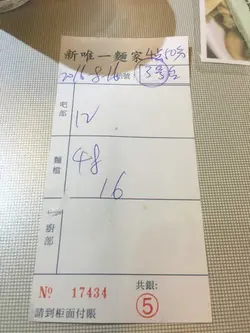 新唯一麵家 4点50分
2016-8-16 號 3号台
吧部 12
麵檔 48
16
廚部
共銀:
No 17434 5
請到柜面付賬